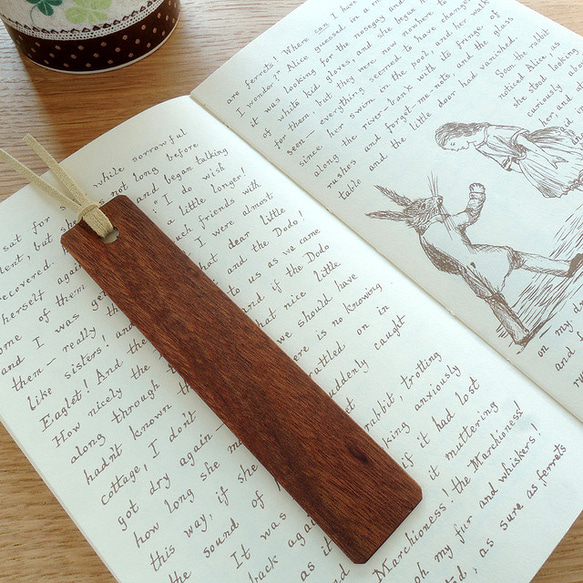 sat for while sorrowful
lent, but she not long before
recovered and began talking
herself again I do wish
some of them a little longer!
and I was get such friends with
them — really I were almost
like sisters! an that dear little
Eaglet! And the and the Dodo!
How nicely the to us as we came
along through t and if the Dodo
hadn't known th that nice little
cottage, I don't we should have
got dry again — re is no knowing
how long she m rattled, on in
this way, if she suddenly caught
the sound of
It was rabbit, trotting
back again king anxiously
if it had lost
muttering
Marchioness! the Marchioness!
oh my fur and whiskers!
d, as sure as ferrets
are ferrets! Where can I have
I wonder?" Alice guessed in a m
was looking for the nosegay and
of white kid gloves, and she began
for them, but they were now nowhere to
seen — everything seemed to have changed
since her swim in the pool, and her walk
along the river-bank with its fringe of
rushes and forget-me-nots, and the glass
table and the little door had vanished.
Soon the rabbit
noticed Alice, as
she stood looking
curiously a
her, and
on my
and